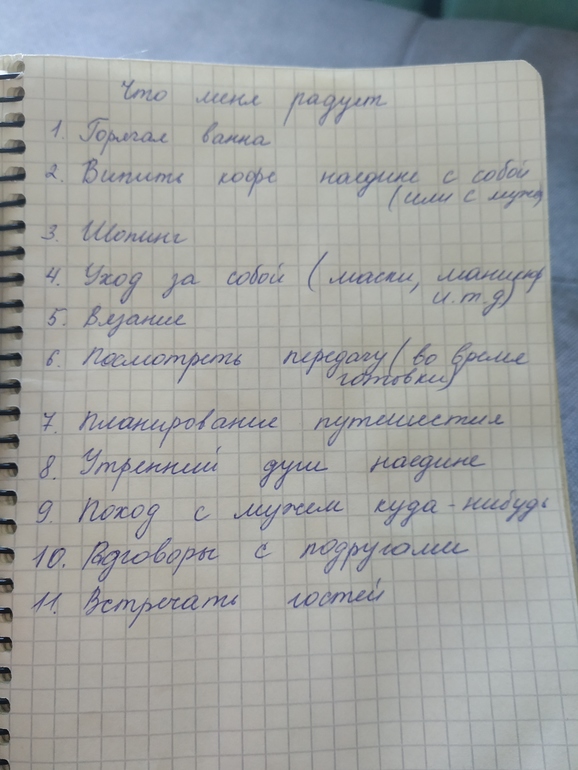 Что меня радует
1. Горячая ванна
2. Випить кофе наедине с собой
(или с мужем)
3. Шопинг
4. Уход за собой (маски, маникюр
и.т.д)
5. Вязание
6. Посмотреть передачу (во время
готовки)
7. Планирование путешествия
8. Утренний душ наедине
9. Поход с мужем куда-нибудь
10. Разговоры с подругами
11. Встречать гостей